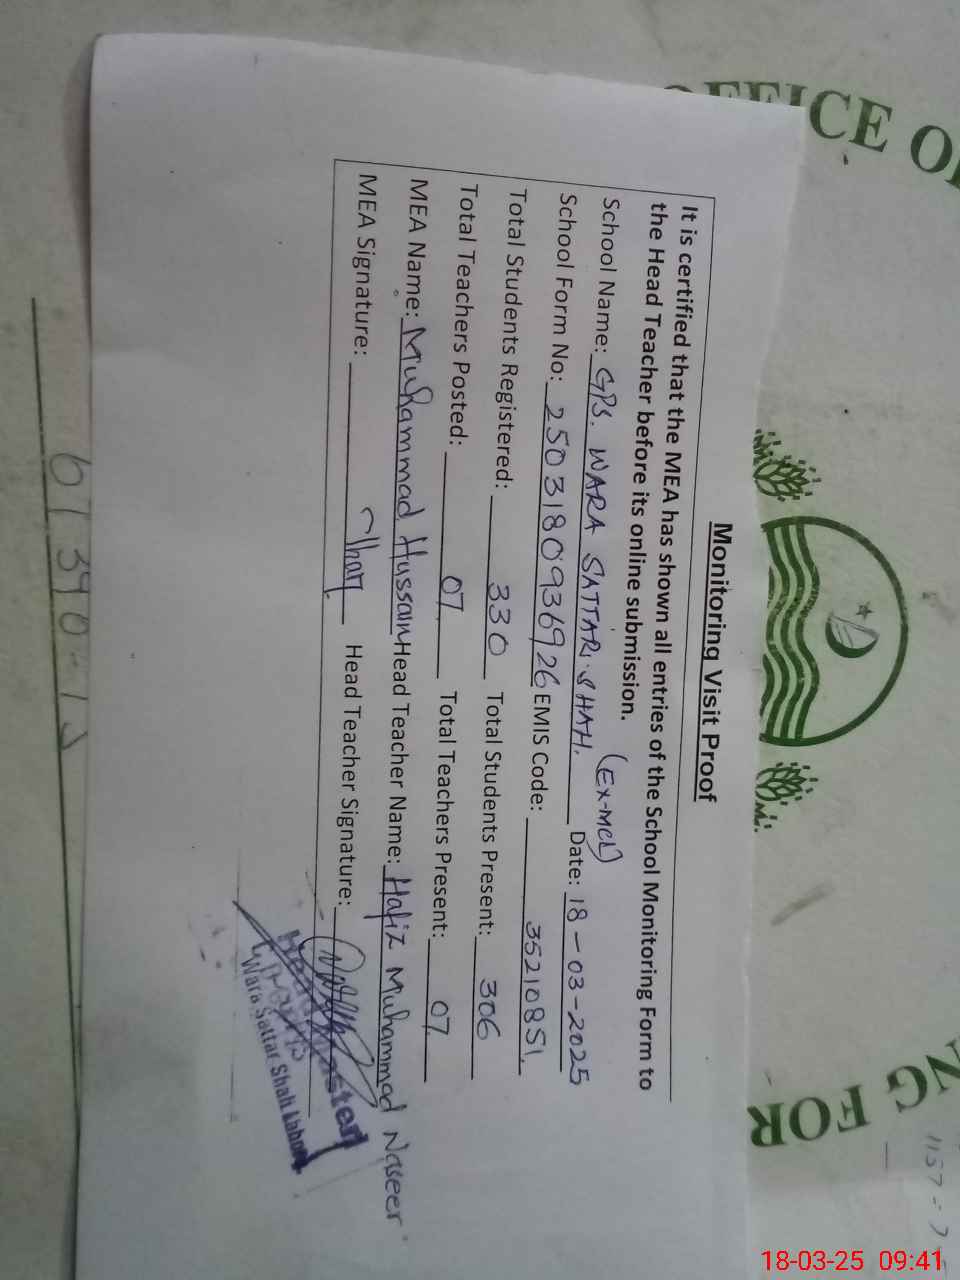 OFFICE O
Monitoring Visit Proof
It is certified that the MEA has shown all entries of the School Monitoring Form to
the Head Teacher before its online submission.
(EX-MCL)
School Name: GPS. WARA SATTAR SHAH. Date: 18-03-2025
School Form No: 2503180936926 EMIS Code: 35210851.
Total Students Registered: 330 Total Students Present: 306
Total Teachers Posted: 07 Total Teachers Present: 07
MEA Name: Muhammad Hussain Head Teacher Name: Hafiz Muhammad Naseer
MEA Signature: Head Teacher Signature:
Headmaster
Wara Sattar Shah Lahore
NG FOR
18-03-25 09:41